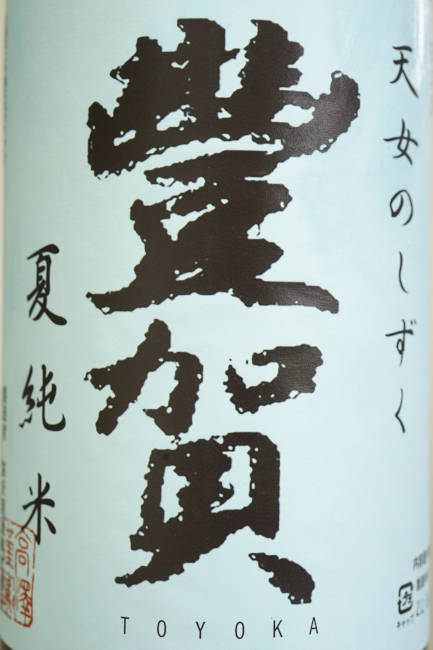 天女のしずく
豊賀
夏純米
TOYOKA
キャップ